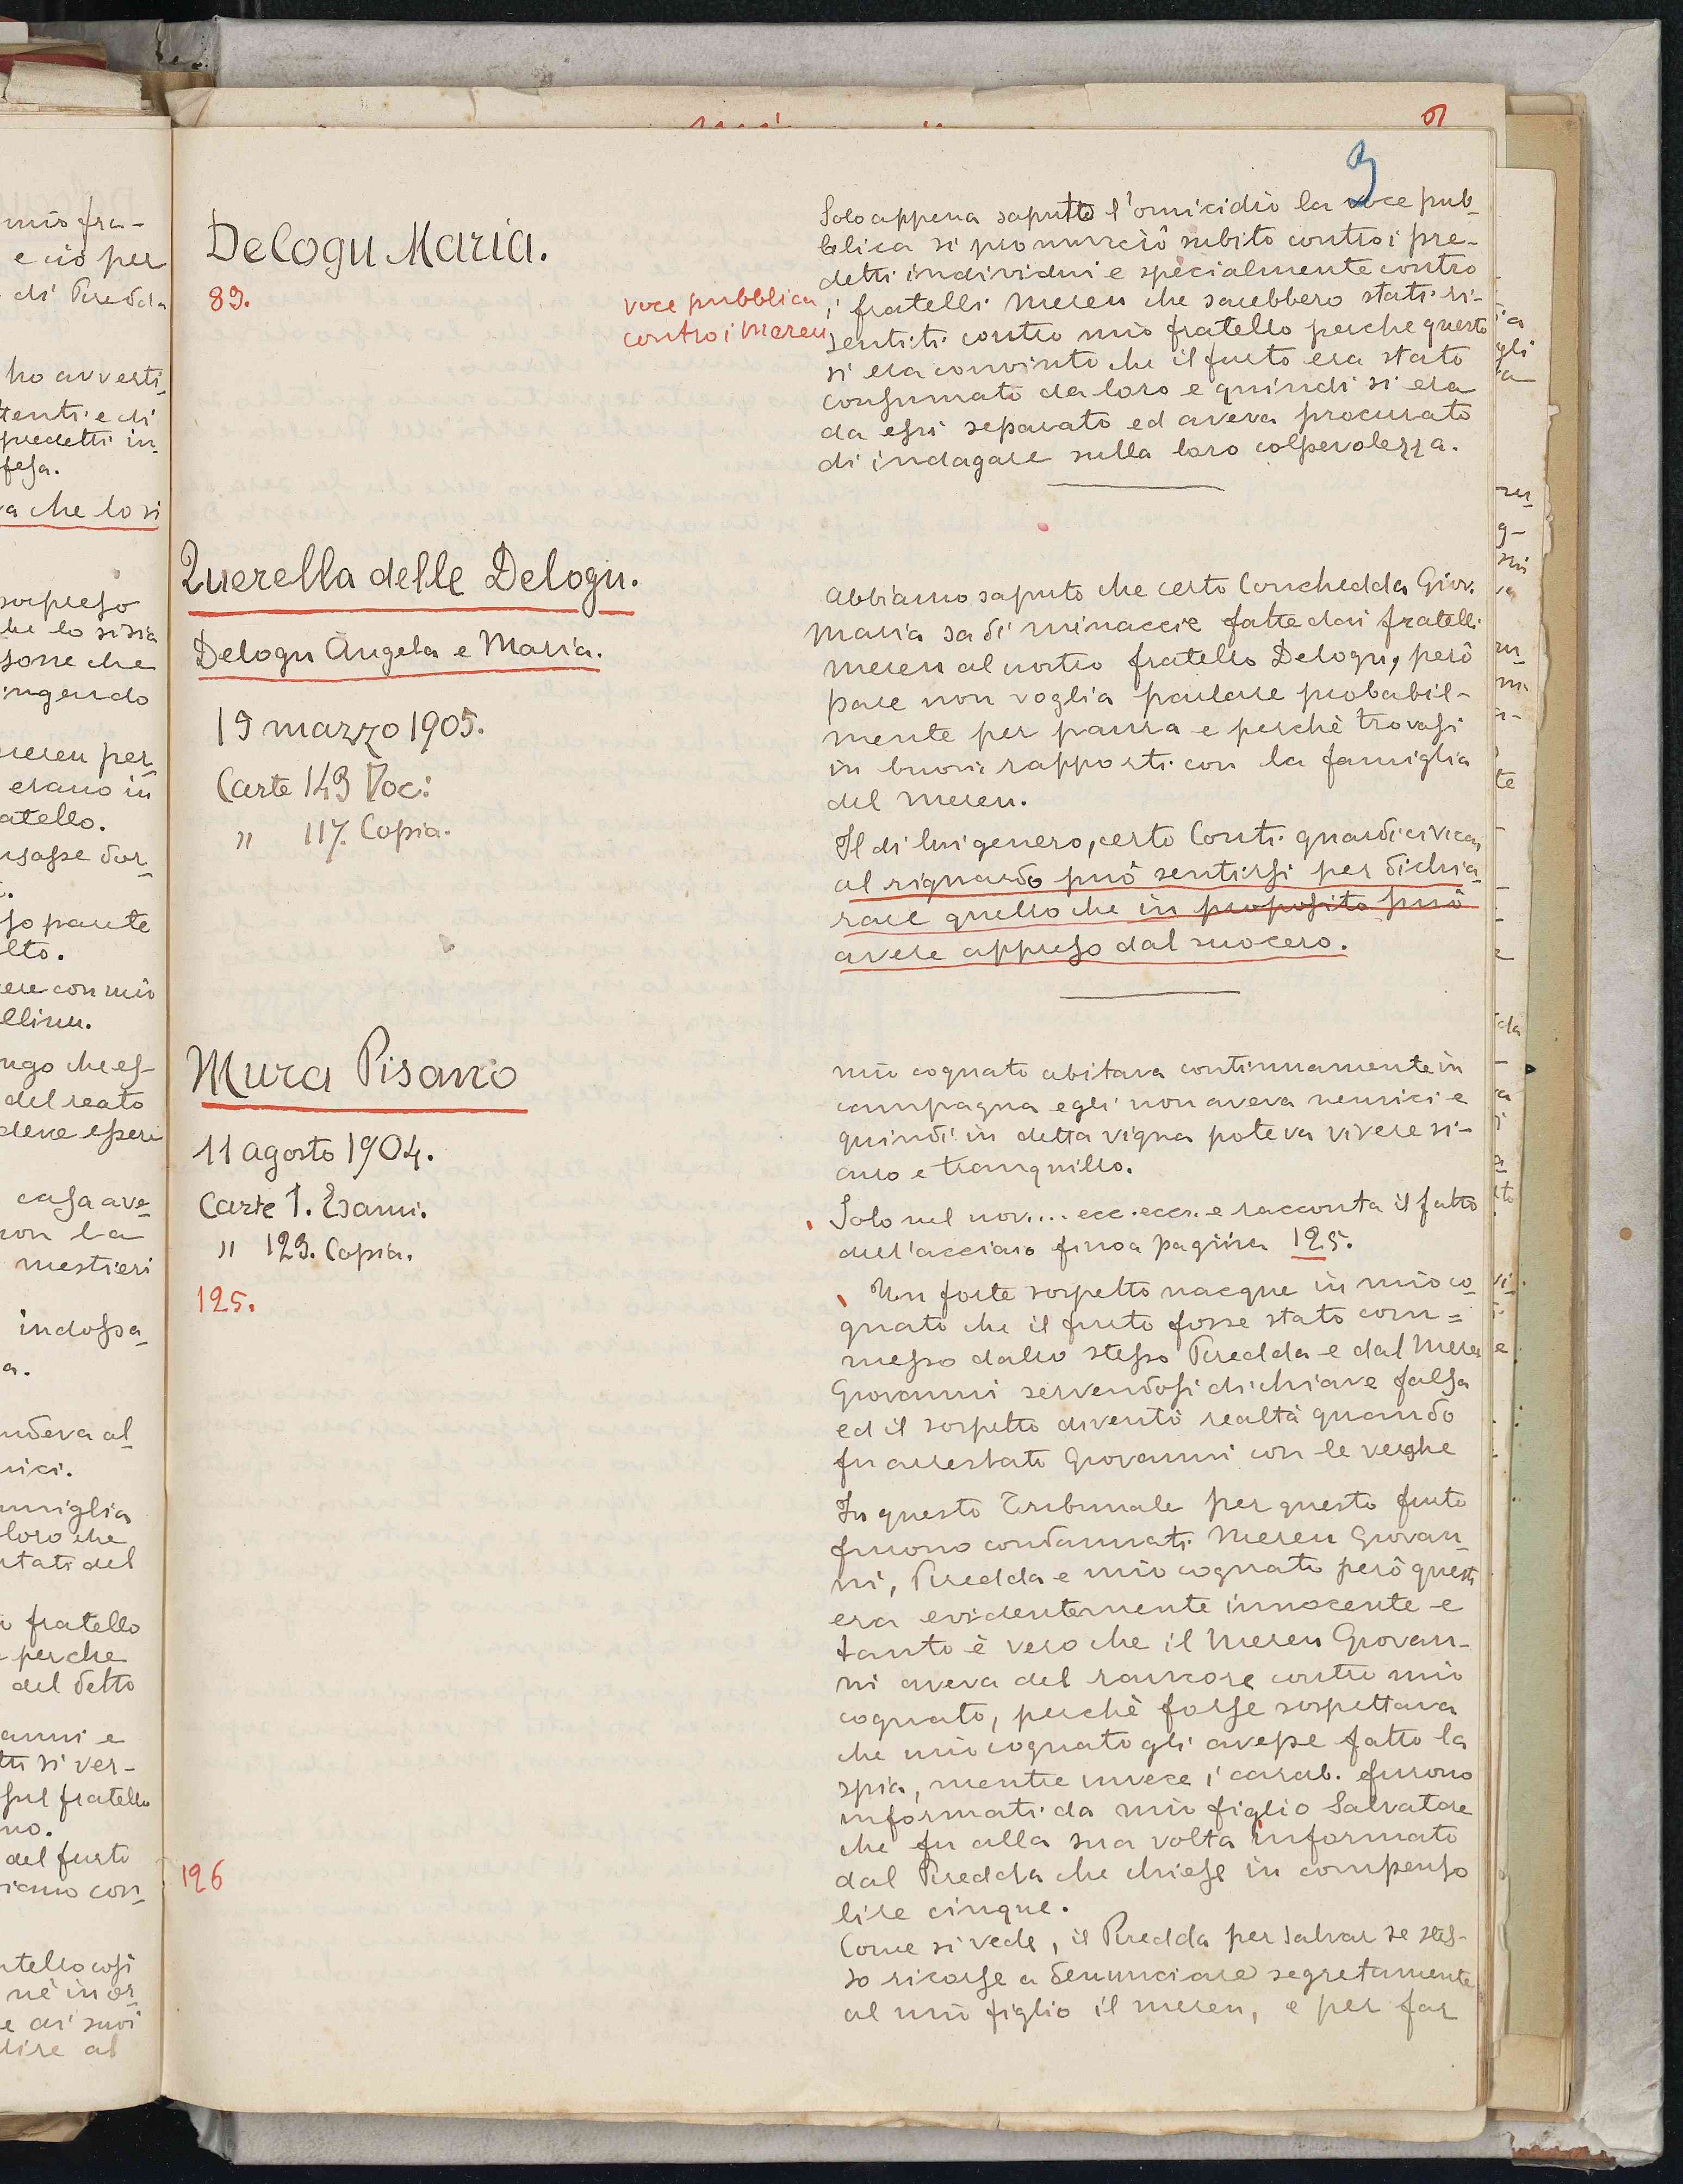 9
Delogu Maria.
89.
voce pubblica
contro i Mereu
Solo appena saputo l'omicidio la voce pub-
blica si pronunciò subito contro i pre-
detti individui e specialmente contro
i fratelli Mereu che sarebbero stati ri-
sentiti contro mio fratello perche questo
si era convinto che il furto era stato
consumato da loro e quindi si era
da essi separato ed aveva procurato
di indagare sulla loro colpevolezza.
Querella delle Delogu.
Delogu Angela e Maria.
19 marzo 1905.
Carte 149 Voc:
" 117. Copia.
Abbiamo saputo che certo Conchedda Giov.
Maria sa di minaccie fatte dai fratelli
Mereu al nostro fratello Delogu, però
pare non voglia parlare probabil-
mente per paura e perchè trovasi
in buoni rapporti con la famiglia
del Mereu.
Il di lui genero, certo Conti guardi civica,
al riguardo può sentirsi per dichia-
rare quello che in proposito può
avere appreso dal suocero.
Mura Pisano
11 agosto 1904.
Carte 1. Esami.
" 123. Copia.
125.
mio cognato abitava continuamente in
campagna egli non aveva nemici e
quindi in detta vigna poteva vivere si-
curo e tranquillo.
Solo nel nov.... ecc. ecc. e racconta il fatto
dell'acciaio fino a pagina 125.
Un forte sospetto nacque in mio co-
gnato che il furto fosse stato com=
messo dallo stesso Piredda e dal Mereu
Giovanni servendosi di chiave falsa
ed il sospetto diventò realtà quando
fu arrestato Giovanni con le verghe
In questo Tribunale per questo furto
furono condannati Mereu Giovan-
ni, Piredda e mio cognato però questi
era evidentemente innocente e
tanto è vero che il Mereu Giovan-
ni aveva del rancore contro mio
cognato, perchè forse sospettava
che mio cognato gli avesse fatto la
spia, mentre invece i carab. furono
informati da mio figlio Salvatore
che fu alla sua volta informato
dal Piredda che chiese in compenso
lire cinque.
126
Come si vede, il Piredda per salvar se stes-
so ricorse a denunciare segretamente
al mio figlio il Mereu, e per far